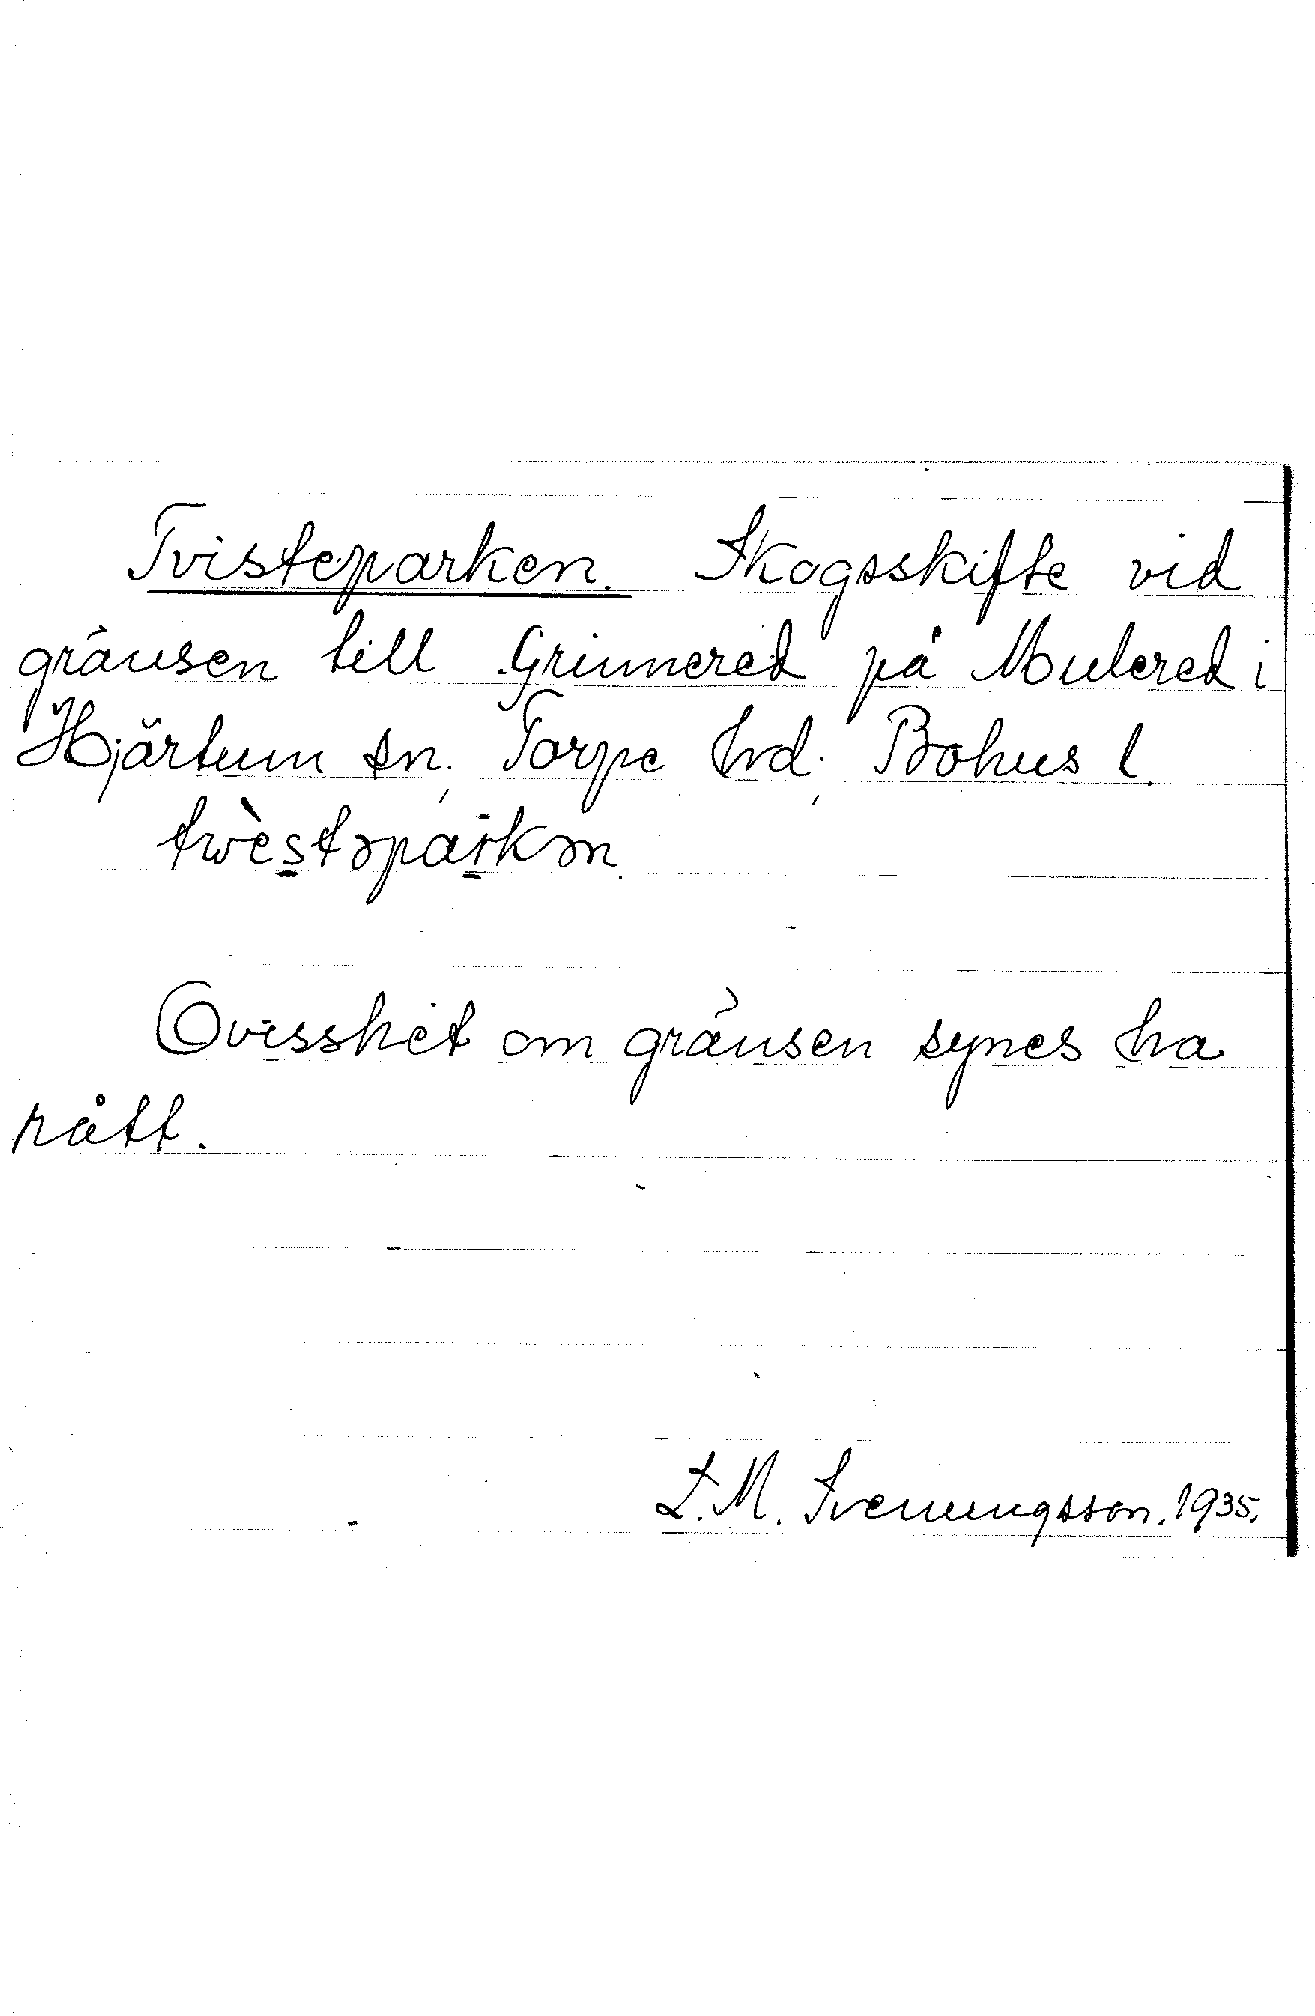 Tvisteparken. Skogsskifte vid
gränsen till Grinnered på Mulered i
Hjärtum sn, Torpe hd, Bohus l.
twèstəparkən.
Ovisshet om gränsen synes ha
rått.
L. M. Svenungsson. 1935.